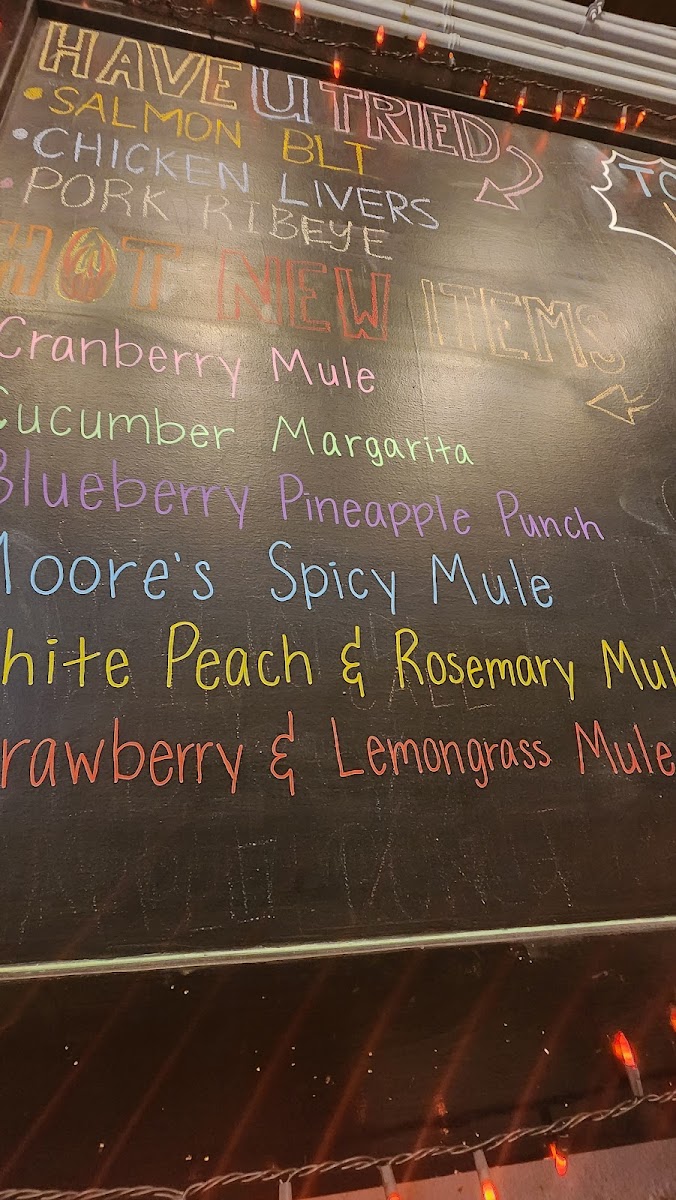 HAVE U TRIED
• SALMON BLT
• CHICKEN LIVERS
• PORK RIBEYE
HOT NEW ITEMS
Cranberry Mule
Cucumber Margarita
Blueberry Pineapple Punch
Moore's Spicy Mule
hite Peach & Rosemary Mul
rawberry & Lemongrass Mule
TO